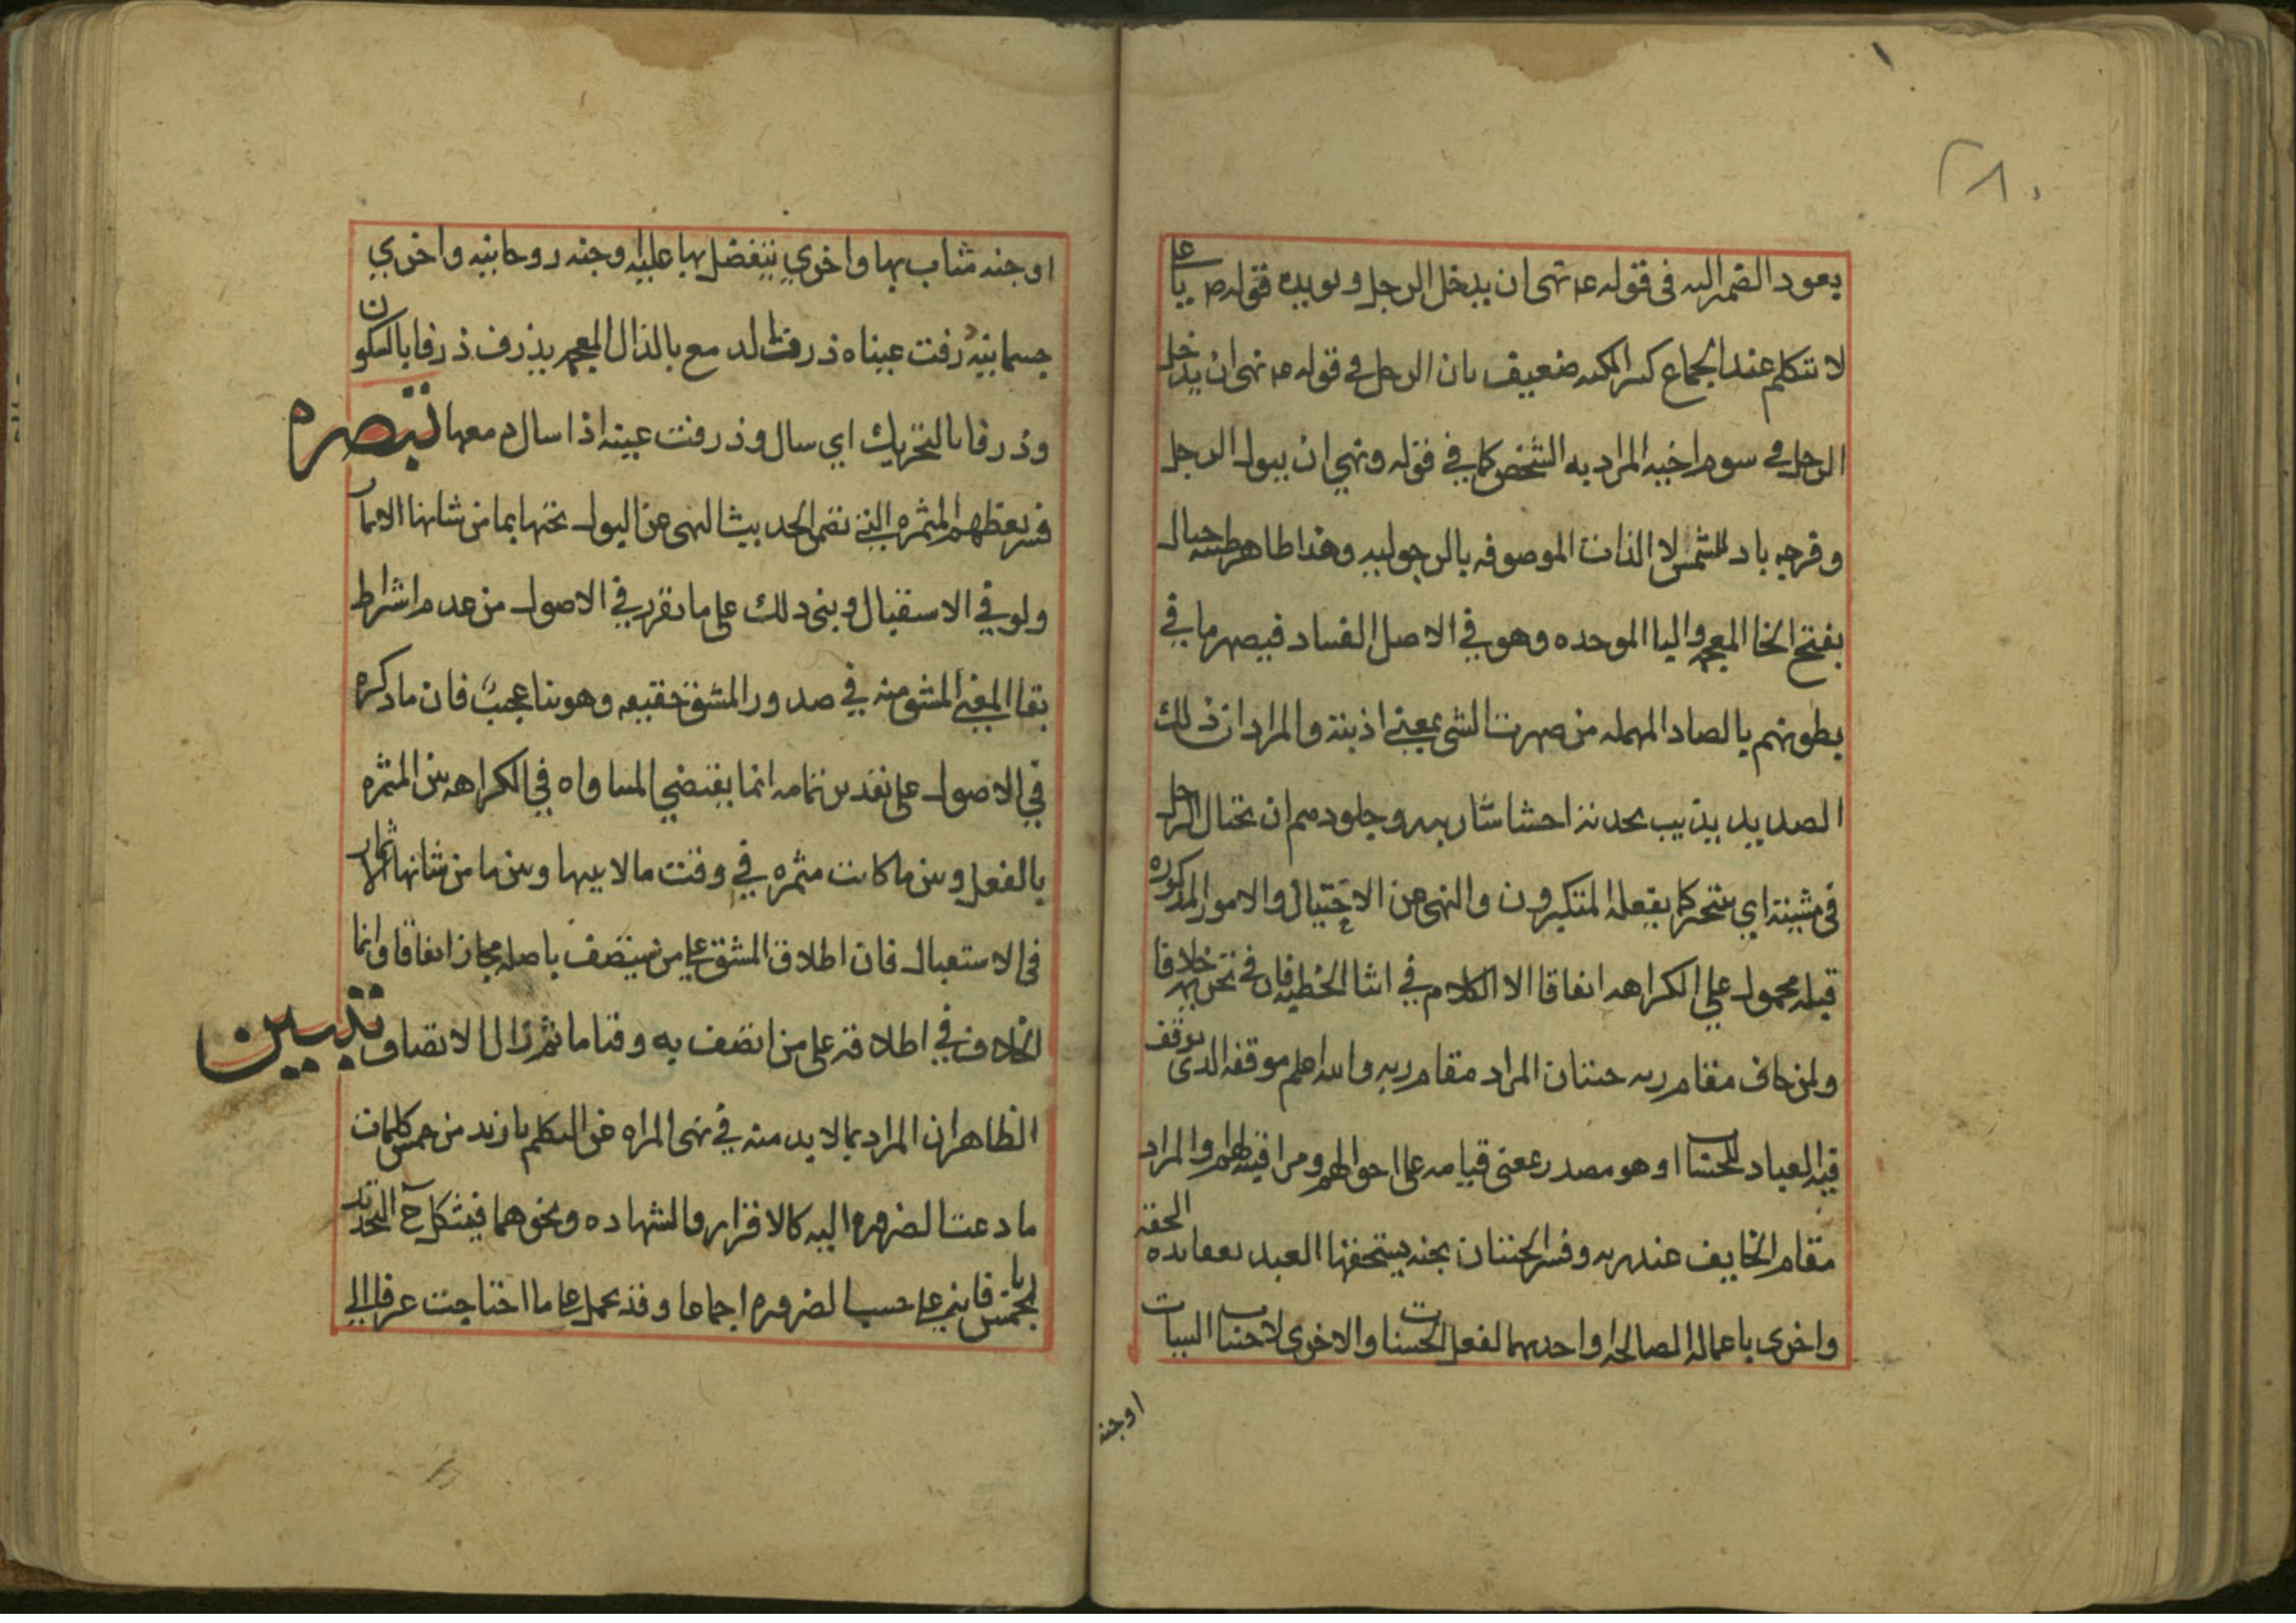 ٢٨٠
يعود الضمير اليه فى قوله ع نهى ان يدخل الرجل ويويده قوله ص يا على
لا تتكلم عند الجماع كثير المكنه ضعيف بان الرجل في قوله ص نهى ان يدخل
الرجل في سوم اخيه المراد به الشخص كما في قوله ونهي ان يبول الرجل
وفرجه باد للشمس لا الذات الموصوفه بالرجوليه وهذا ظاهر طينه خبال
بفتح الخا المعجمه واليا الموحده وهو في الاصل الفساد فيصهر ما في
بطونهم بالصاد المهمله من صهرت الشي بمعني اذبته والمراد ان ذلك
الصديد يذيب بحدته احشا شاربيه وجلودهم ان يختال الرجل
في مشيته اي يتبختر كما يفعله المتكبرون والنهي عن الاختيال والامور المذكوره
قبله محمول علي الكراهه اتفاقا الا الكلام في اثنا الخطبه فان في تحريمه خلافا
ولمن خاف مقام ربه جنتان المراد مقام ربه والله اعلم موقفه الذي يوقف
فيه العباد للحساب او هو مصدر بمعنى قيامه على احوالهم ومراقبته لهم والمراد
مقام الخايف عند ربه وفسر الجنتان بجنه يستحقها العبد بعقايده الحقه
واخرى باعماله الصالحه او احديهما لفعل الحسنات والاخرى لاجتناب السيات
او جنه
او جنه مثاب بها واخري يتفضل بها عليه وجنه روحانيه واخري
جسمانيه ذرفت عيناه ذرفت الدمع بالذال المعجمه يذرف ذرفا بالسكون
وذرفا بالتحريك اي سال وذرفت عينه اذا سال دمعها تبصره
فسر بعظهم المثمره التي تضمن الحديث النهى عن البول تحتها بما من شانها الاثمار
ولو في الاستقبال وبنى ذلك على ما تقرر في الاصول من عدم اشتراط
بقا المعني المشتق منه في صدور المشتق حقيقه وهو بنا عجيب فان ما ذكره
في الاصول على تقدير تمامه انما يقتضي المساواه في الكراهه بين المثمره
بالفعل وبين ما كانت مثمره في وقت ما لا بينها وبين ما من شانها الاثمار
فى الاستقبال فان اطلاق المشتق علي من سيتصف باصله مجاز اتفاقا وانما
الخلاف في اطلاقه على من اتصف به وقتا ما ثم زال الاتصاف تبيين
الظاهر ان المراد بما لا بد منه في نهى المراه عن التكلم بازيد من خمس كلمات
ما دعت الضروره اليه كالاقرار والشهاده ونحوهما فيشكل ح التحديد
بالخمس فانه علي حسب الضروره اجماعا وقد يحمل على ما احتاجت عرفا الي